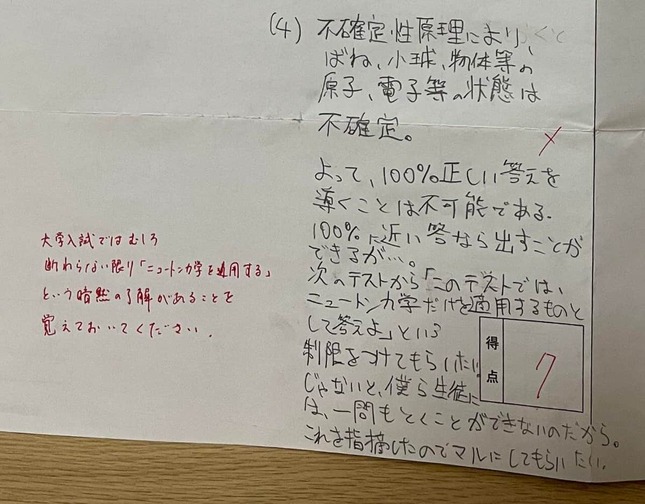 (4) 不確定性原理により、
ばね、小球、物体等の
原子、電子等の状態は
不確定。
よって、100%正しい答えを
導くことは不可能である。
100%に近い答なら出すことが
できるが…。
次のテストから「このテストでは、
ニュートン力学だけを適用するものと
して答えよ」という
制限をつけてもらいたい。
じゃないと、僕ら生徒に
は、一問もとくことができないのだから。
これを指摘したのでマルにしてもらいたい。
大学入試ではむしろ
断わらない限り「ニュートン力学を適用する」
という暗黙の了解があることを
覚えておいてください。
得点
7